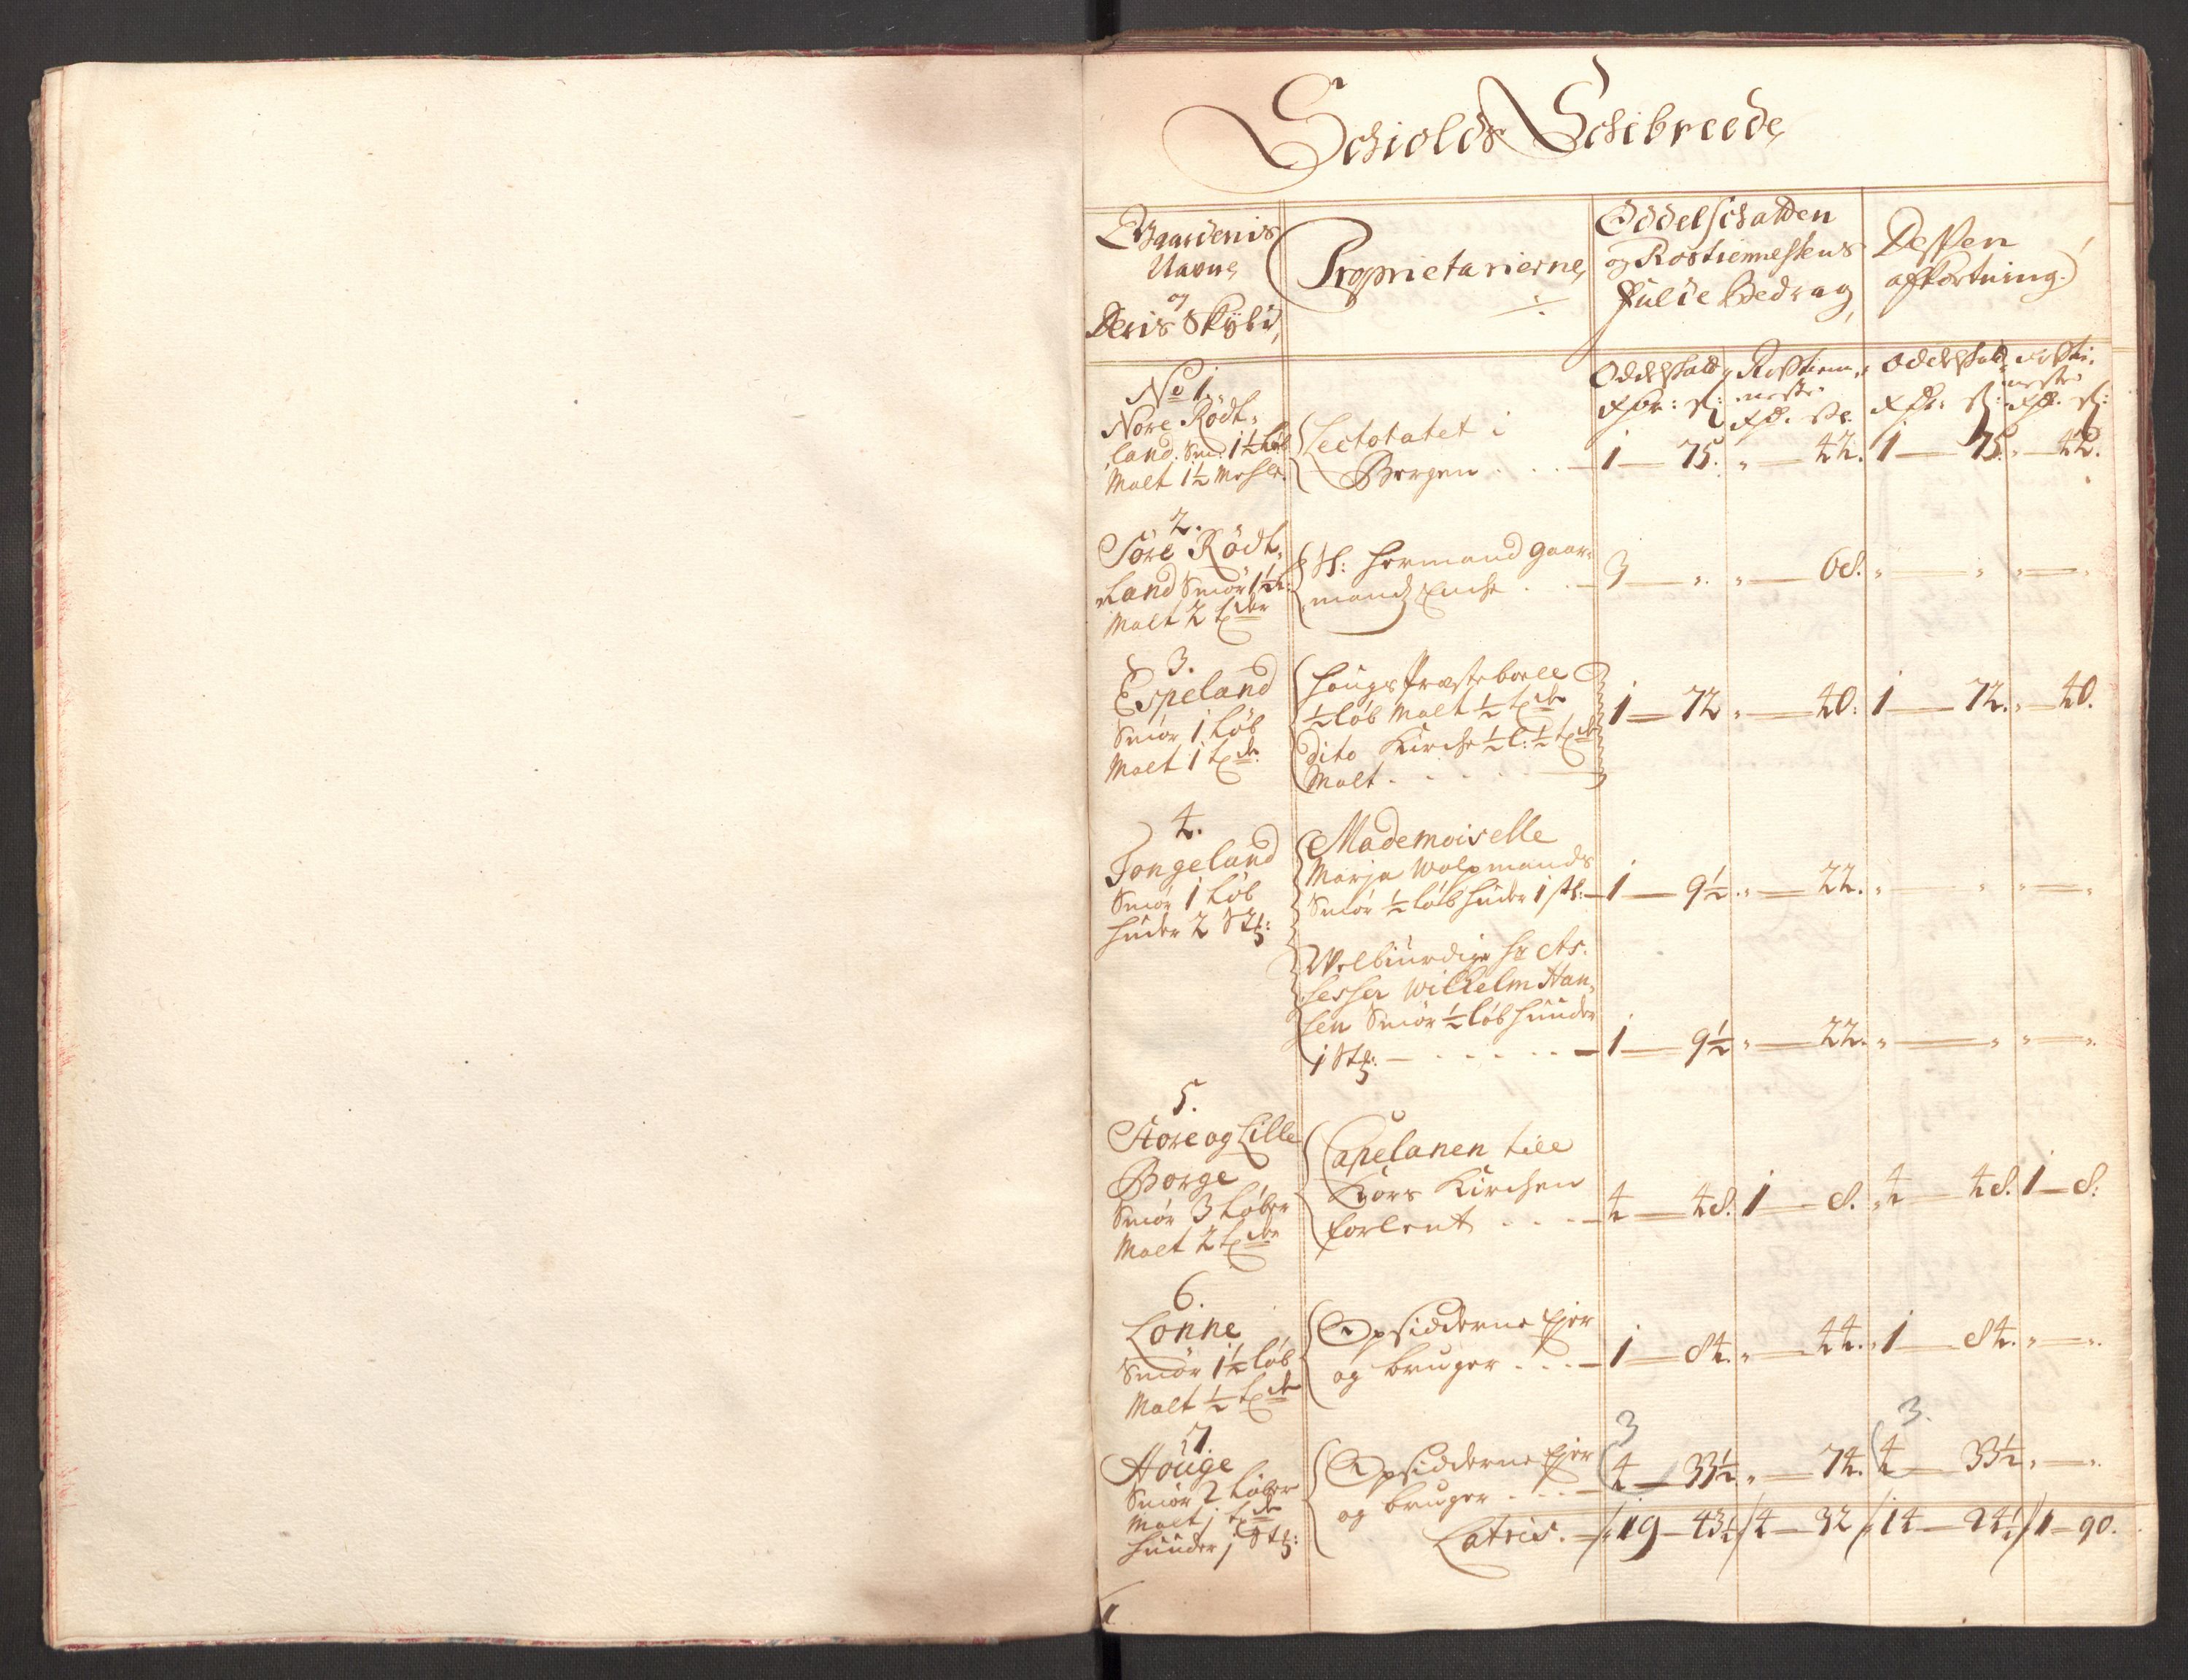 Schiolds Schibreede
Gaardenis
Navne
og
Deris Skyld,
Proprietarierne,
Oddelschatten
og Rostiennestens
fulde Bedrag,
Dessen
afkortning.
Oddelskatt Rostienn- Oddelskat Rosti-
neste neste
No 1.
Nore Rödt-
land. Sm. 1½ Løb
Malt 1½ Meler
Lectoratet i
Bergen . . . — 1 — 75. „ — 42. 1 — 75. „ — 42.
2.
Söre Rödt-
land Smör 1½ L:
Malt 2 tder
Sl: Hermand Gaar-
mands Enche . . — 3 — „. „ — 68. „ — „ „ — „
3.
Espeland
Smör 1 Løb
Malt 1 tde
Hougs Præsteboele
½ løb Malt ½ tde
dito Kirche ½ l: ½ tde
Malt . . . . .
1 — 72 „ — 40. 1 — 72. „ — 40.
4.
Tongeland
Smör 1 Løb
Huder 2 Stk:
Mademoiselle
Marja Wolpmands
Smör ½ Løb Huder 1 stk: — 1 — 9½. „ — 22. „ — „ „ — „
Welbiurdige Hr As-
sesser Wilhelm Han-
sen Smör ½ løb Huuder
1 Stk: — . . . . . — 1 — 9½ „ — 22. „ — „ „ — „
5.
Store og Lille
Borge
Smör 3 Løber
Malt 2 tder
Capelanen till
Kors Kirchen
forlent . . . . — 4 — 48. 1 — 8. 4 — 48. 1 — 8.
6.
Lonne
Smör 1½ løb
Malt ½ tde
Opsidderne Ejer
og bruger . . . — 1 — 84. „ — 44. 1 — 84. „ — „
7.
Houge
Smör 2 Løber
Malt 1 tde
Huuder 1 Stk:
3 3.
Opsidderne Ejer
og bruger . . . — 4 — 33½ „ — 74. 4 — 33½ „ — „
Latris. — 19 — 43½ / 4 — 32 / 14 — 24½ / 1 — 90.
1